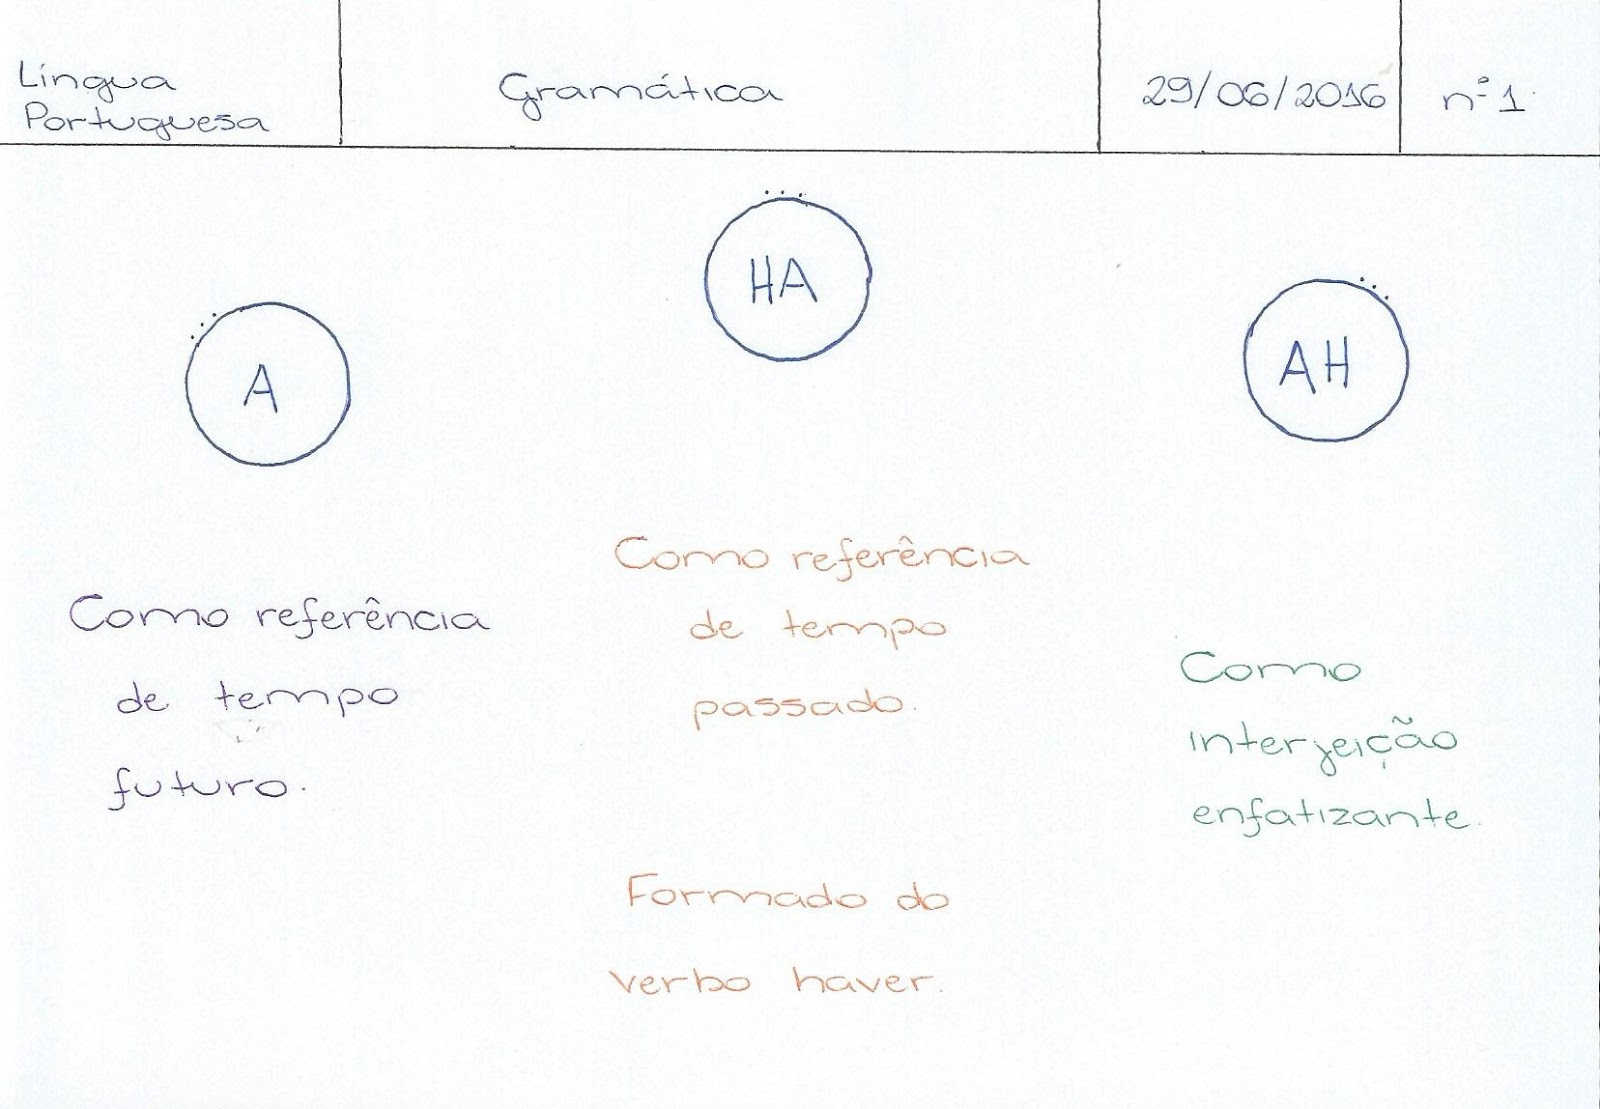 Língua
Portuguesa
Gramática
29/06/2016
nº1
A
HA
AH
Como referência
de tempo
futuro.
Como referência
de tempo
passado.
Formado do
verbo haver.
Como
interjeição
enfatizante.